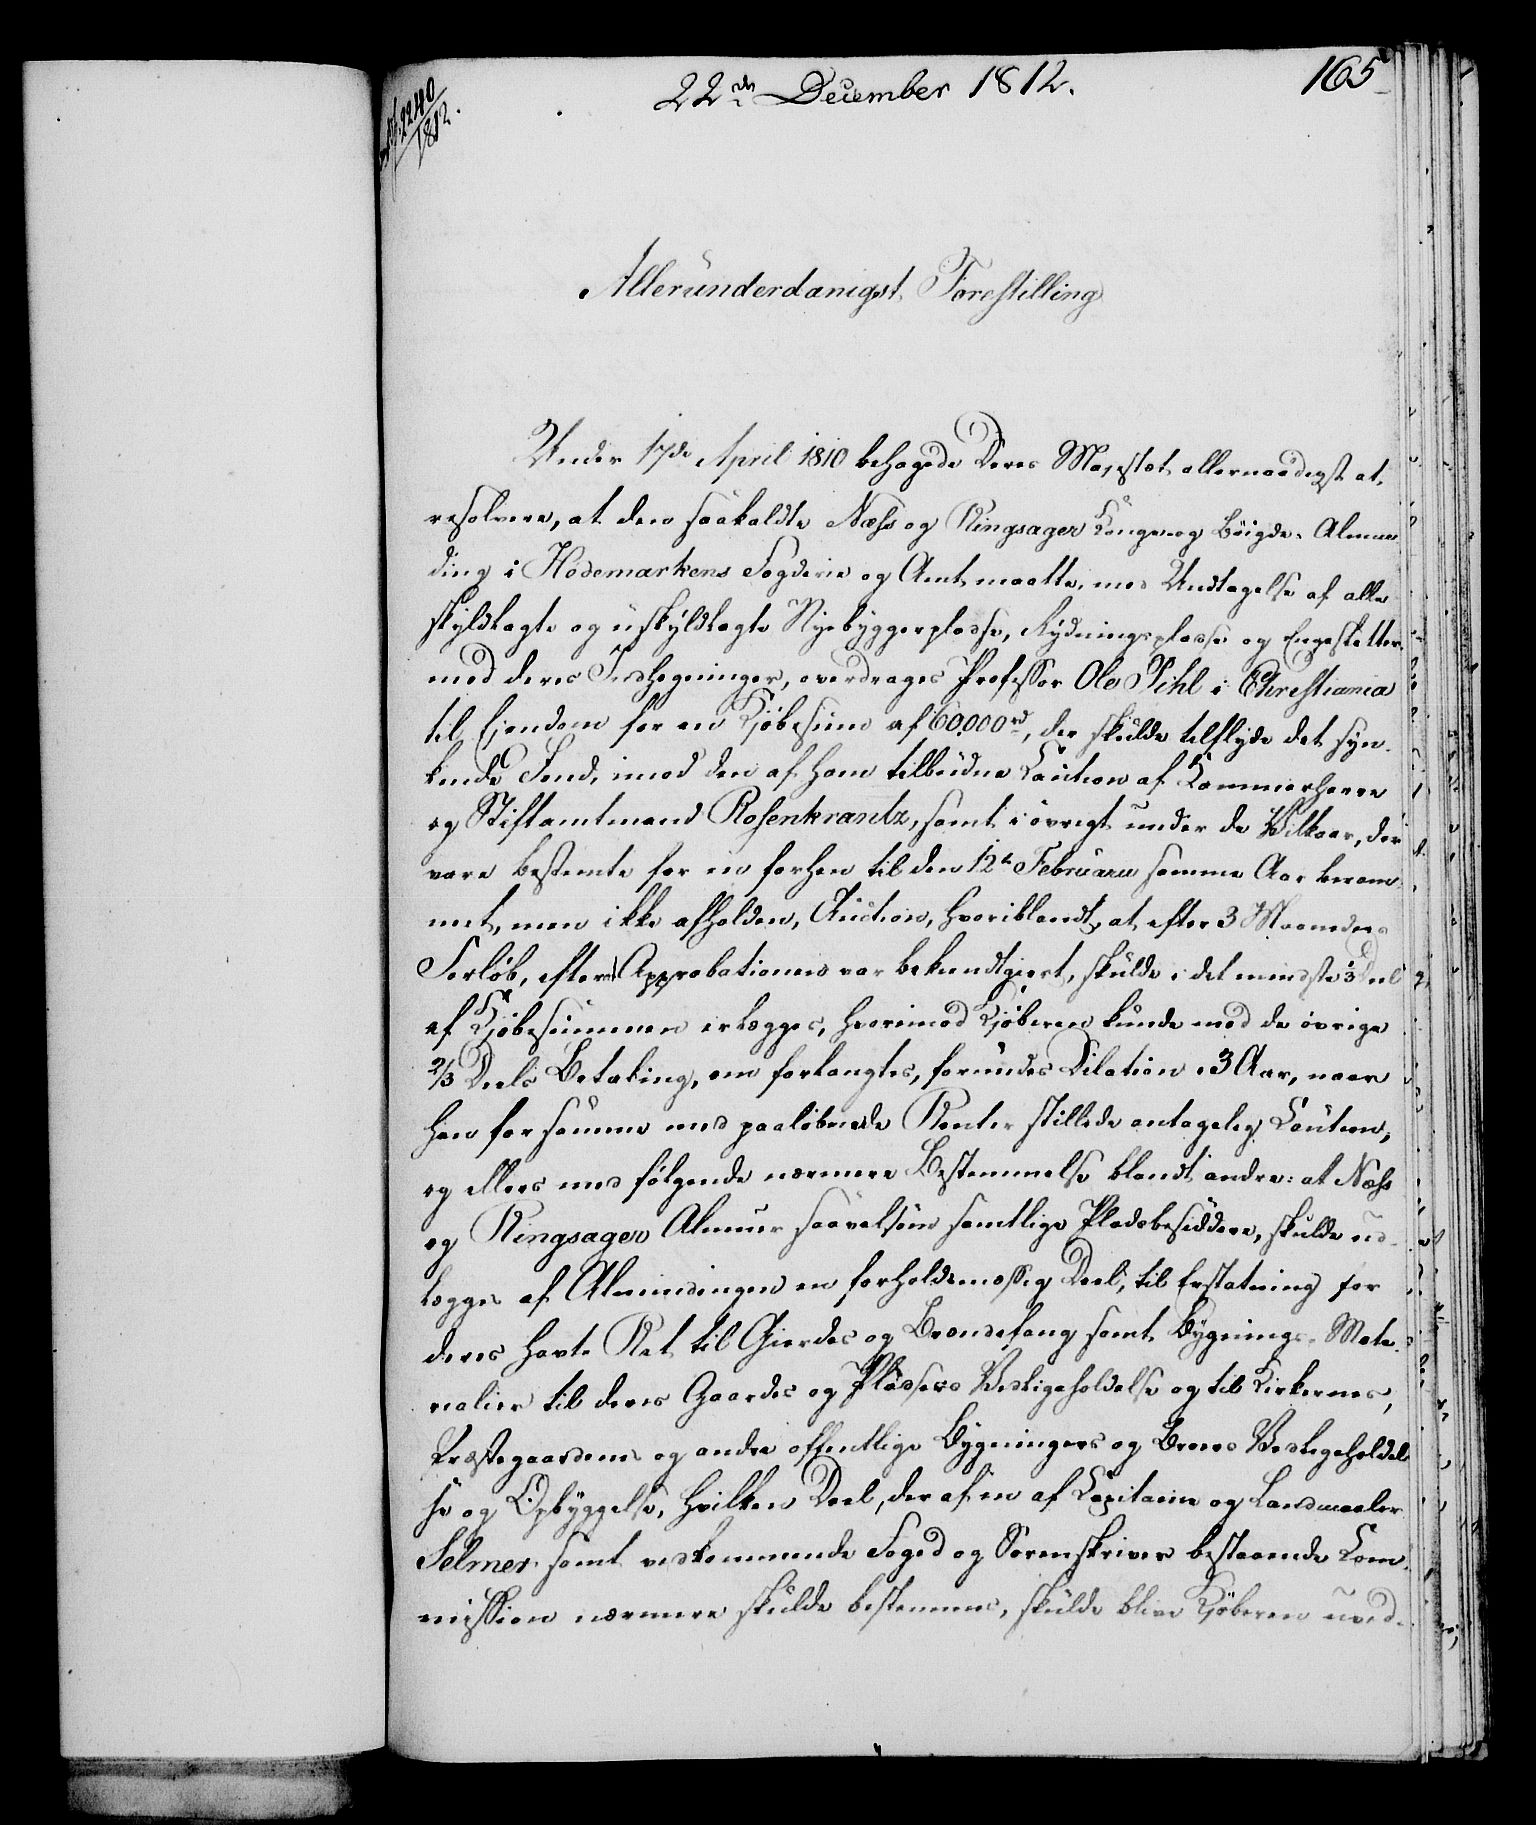 22de December 1812.
165
2240
1812.
Allerunderdanigst Forestilling
Under 17de April 1810 behagede Deres Majestæt allernaadigst at
resolvere, at den saakaldte Næhs og Ringsager Konge og Böigde-Almin
ding i Hedemarkens Fogderie og Amt maatte, med Undtagelse af alle
skyldlagte og uskyldlagte Nyebyggerpladse, Rydningspladse og Engesletter
med deres Indhegninger, overdrages Professor Ole Pihl i Christiania
til Eiendom for en Kjöbesum af 60,000 rd, der skulde tilflyde det syn-
kende Fond, imod den af ham tilbudne Caution af Kammerherre
og Stiftamtmand Rosenkrantz, samt i övrigt under de Vilkaar, der
vare bestemte for en forhen til den 12te Februarii samme Aar beram
met, men ikke afholden, Auction, hvoriblandt, at efter 3 Maaneders
Forlöb, efterat Approbationen var bekiendtgiort, skulde i det mindste 1/3 Deel
af Kjöbesummen erlægges, hvorimod Kjöberen kunde med de övrige
2/3 Deels Betaling, om forlangtes, forundes Dilation i 3 Aar, naar
han for samme med paalöbende Renter stillede antagelig Caution,
og ellers med fölgende nærmere Bestemmelse blandt andre: at Næhs
og Ringsager Almue saavelsom samtlige Pladsbesiddere, skulde ud-
lægges af Almindingen en forholdsmæssig Deel, til Erstatning for
deres havte Ret til Gierdes og Brændefang samt Bygnings-Mate-
rialier til deres Gaardes og Pladsers Vedligeholdelse og til Kirkernes,
Præstegaardenes og andre offentlige Bygningers og Broers Vedligeholdel
se og Opbyggelse, hvilken Deel, der af en af Capitaine og Landmaaler
Selmer samt vedkommende Foged og Sorenskriver bestaaende Com-
mission nærmere skulde bestemmes, skulde blive Kjöberen uved-